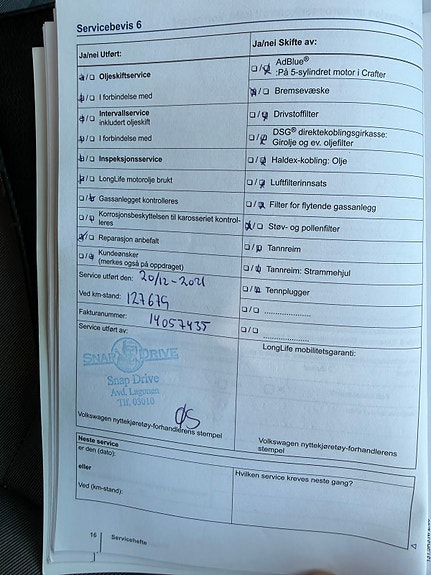 Servicebevis 6
Ja/nei Utført:
Oljeskiftservice
I forbindelse med
Intervallservice
inkludert oljeskift
I forbindelse med
Inspeksjonsservice
LongLife motorolje brukt
Gassanlegget kontrolleres
Korrosjonsbeskyttelsen til karosseriet kontrol-
leres
Reparasjon anbefalt
Kundeønsker
(merkes også på oppdraget)
Service utført den: 20/12-2021
Ved km-stand: 127679
Fakturanummer: 14057435
Service utført av:
SNAP DRIVE
Snap Drive
Avd. Lagunen
Tlf. 03010
ØS
Volkswagen nyttekjøretøy-forhandlerens stempel
Ja/nei Skifte av:
AdBlue®
:På 5-sylindret motor i Crafter
Bremsevæske
Drivstoffilter
DSG® direktekoblingsgirkasse:
Girolje og ev. oljefilter
Haldex-kobling: Olje
Luftfilterinnsats
Filter for flytende gassanlegg
Støv- og pollenfilter
Tannreim
Tannreim: Strammehjul
Tennplugger
LongLife mobilitetsgaranti:
Volkswagen nyttekjøretøy-forhandlerens
stempel
Neste service
er den (dato):
eller
Ved (km-stand):
Hvilken service kreves neste gang?
16 Servicehefte